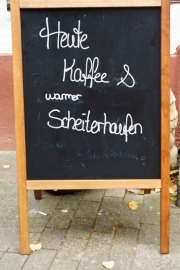 Heute
Kaffee &
warmer
Scheiterhaufen